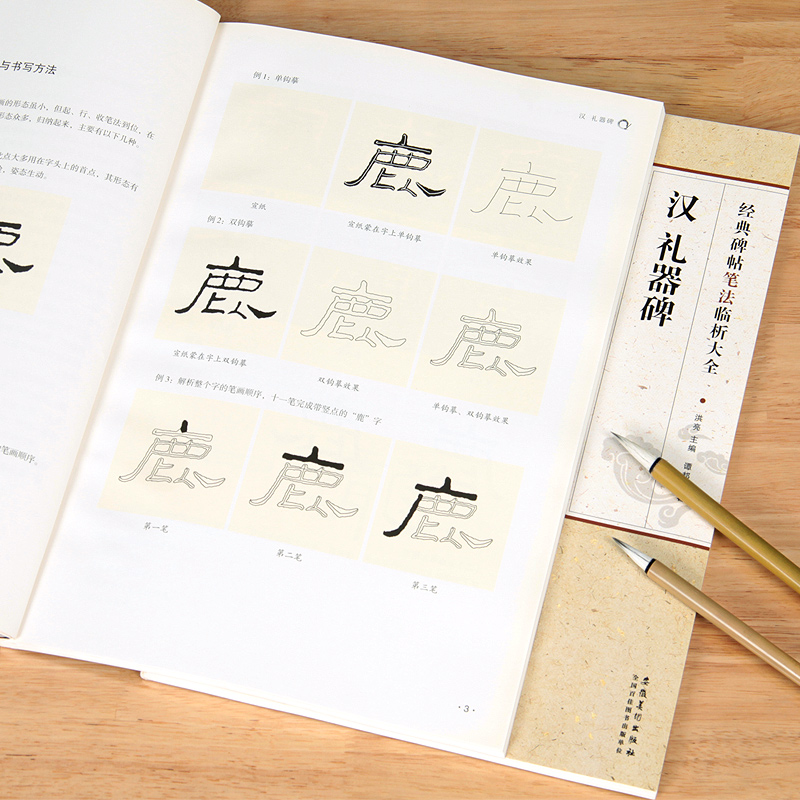 与书写方法
画的形态虽小，但起、行、收笔法到位，在
形态众多，归纳起来，主要有以下几种。
点大多用在字头上的首点，其形态有
姿态生动。
笔画顺序。
汉 礼器碑
例1：单钩摹
鹿
宣纸
宣纸蒙在字上单钩摹
单钩摹效果
例2：双钩摹
鹿
宣纸蒙在字上双钩摹
双钩摹效果
单钩摹、双钩摹效果
例3：解析整个字的笔画顺序，十一笔完成带竖点的“鹿”字
鹿
第一笔
第二笔
第三笔
·3·
经典碑帖笔法临析大全
汉 礼器碑
洪亮 主编 谭
安徽美术出版社
全国百佳图书出版单位